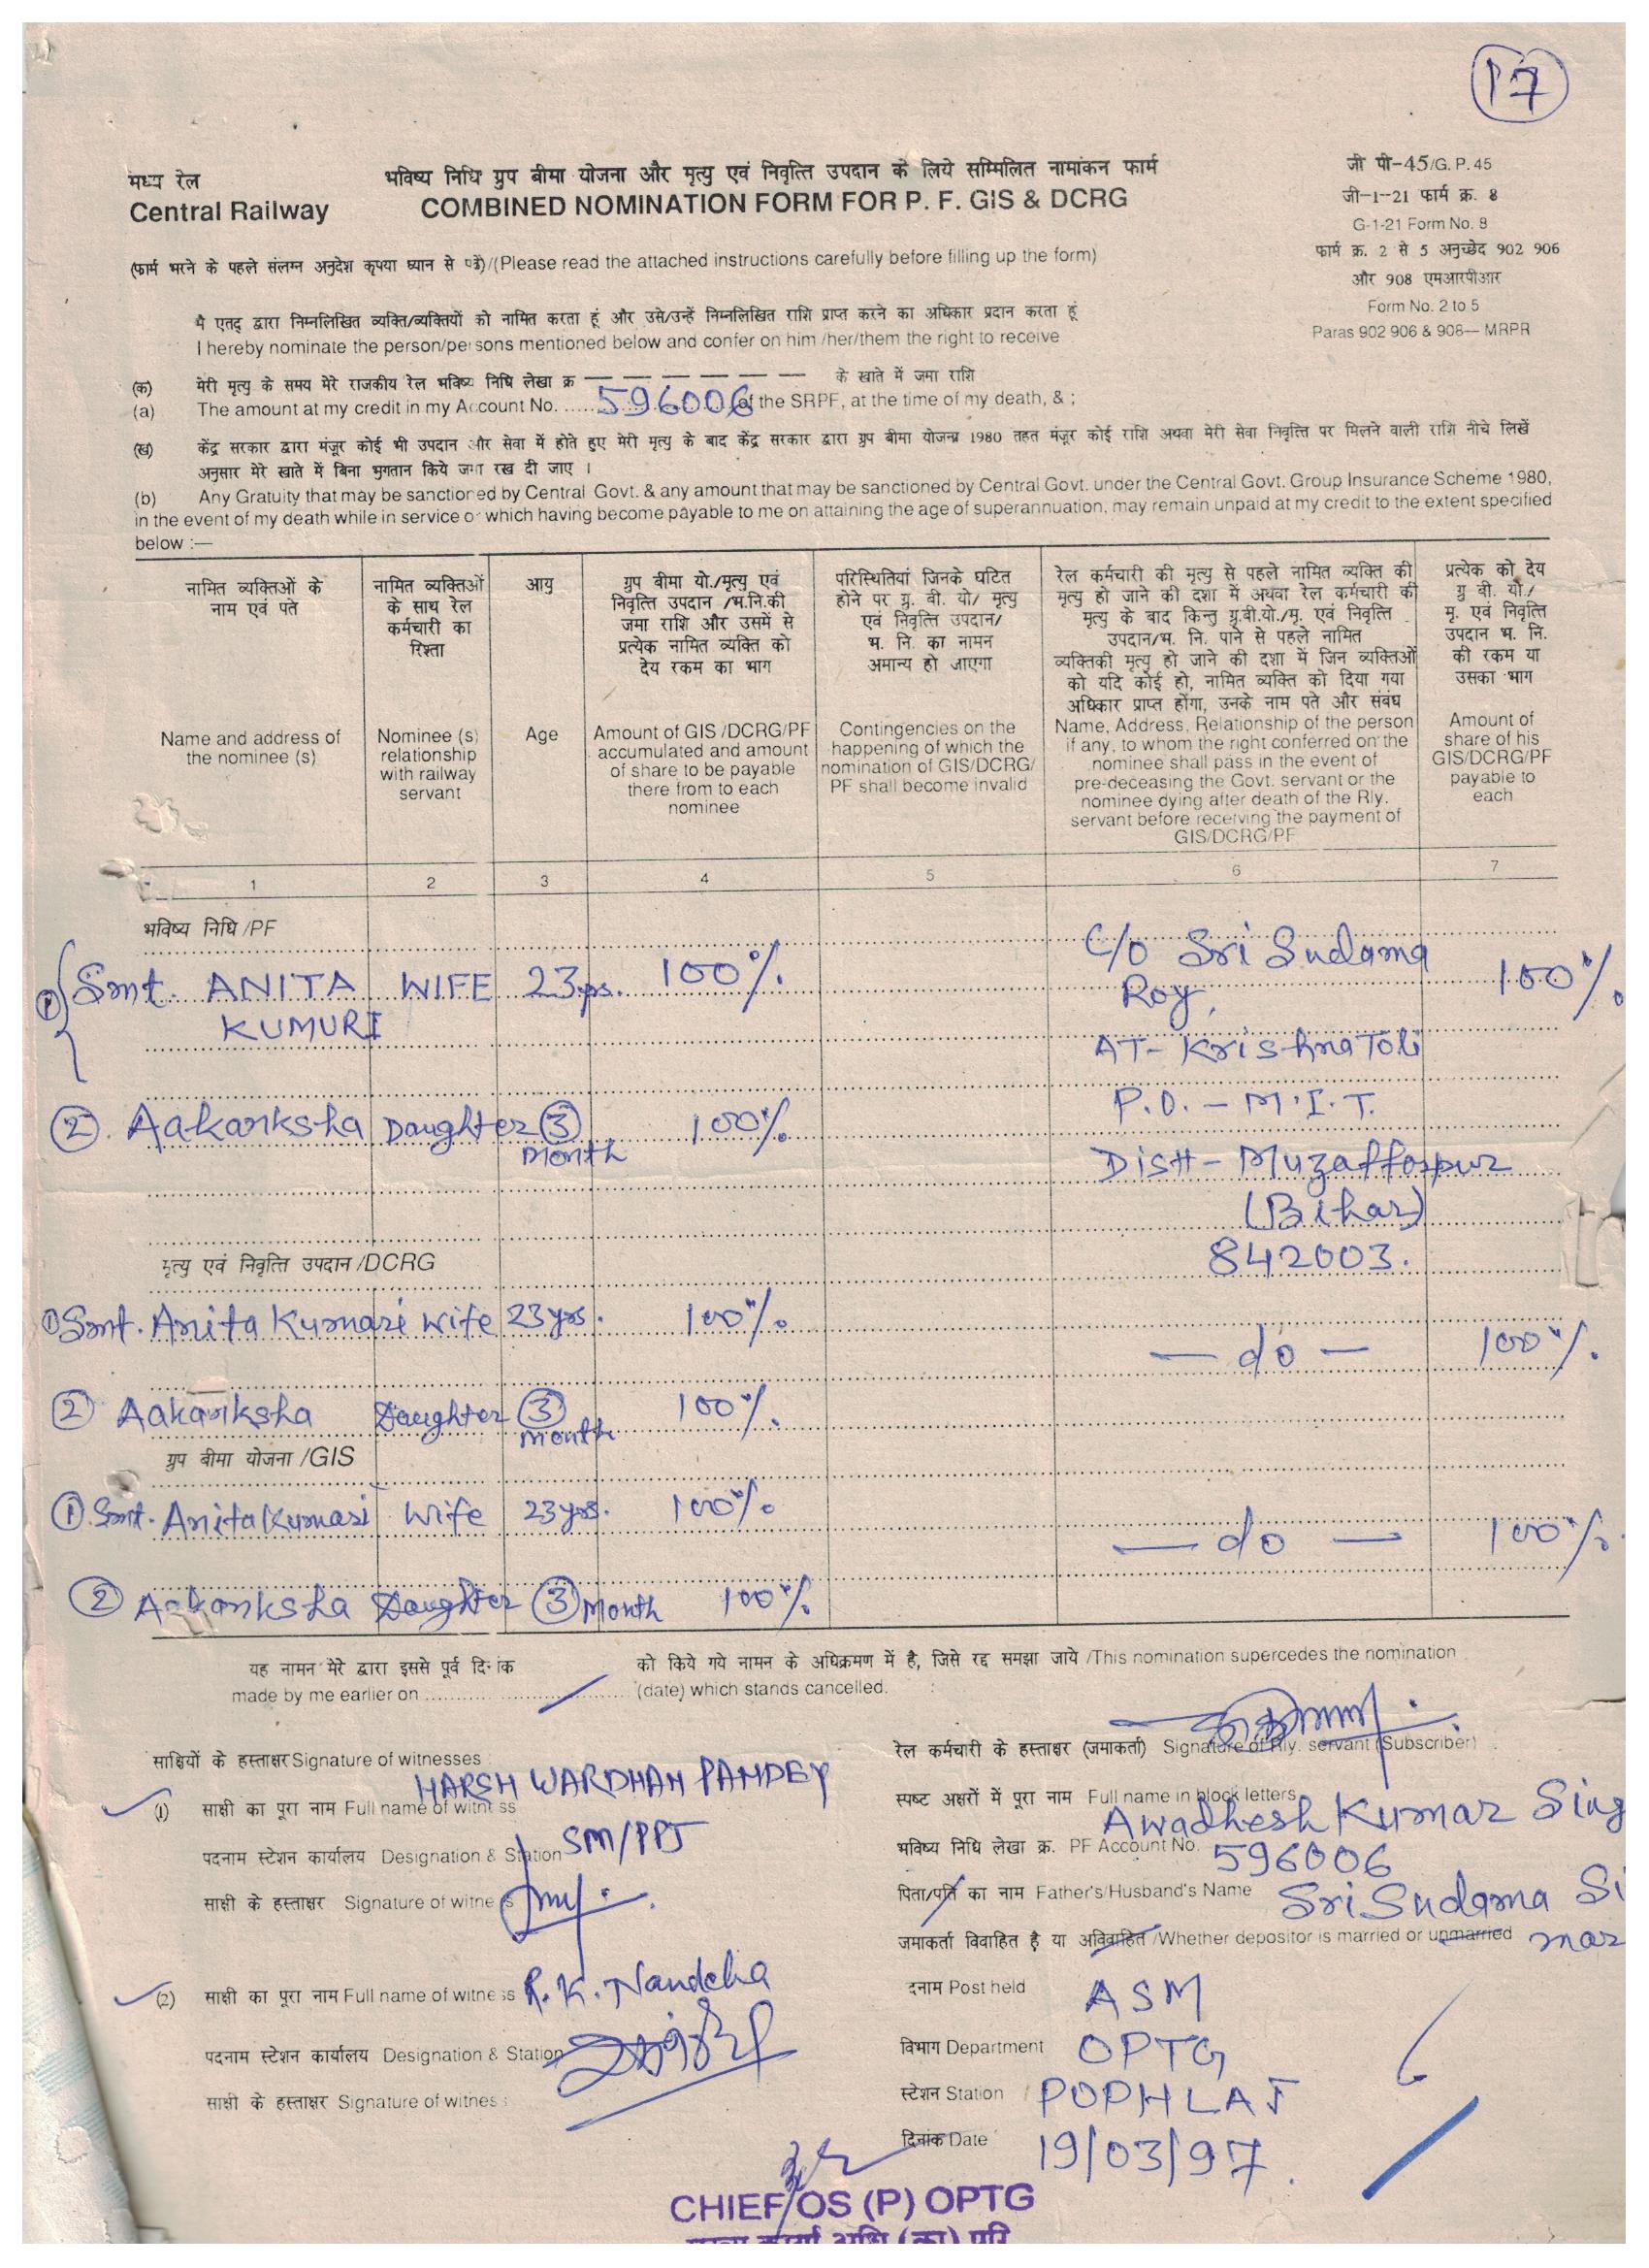 17
मध्य रेल
Central Railway
भविष्य निधि ग्रुप बीमा योजना और मृत्यु एवं निवृत्ति उपदान के लिये सम्मिलित नामांकन फार्म
COMBINED NOMINATION FORM FOR P. F. GIS & DCRG
जी पी-45/G.P.45
जी-1-21 फार्म क्र. 8
G-1-21 Form No. 8
फार्म क्र. 2 से 5 अनुच्छेद 902 906
और 908 एमआरपीआर
Form No. 2 to 5
Paras 902 906 & 908— MRPR
(फार्म भरने के पहले संलग्न अनुदेश कृपया ध्यान से पढें)/(Please read the attached instructions carefully before filling up the form)
मै एतद् द्वारा निम्नलिखित व्यक्ति/व्यक्तियों को नामित करता हूं और उसे/उन्हें निम्नलिखित राशि प्राप्त करने का अधिकार प्रदान करता हूं
I hereby nominate the person/persons mentioned below and confer on him /her/them the right to receive
(क) मेरी मृत्यु के समय मेरे राजकीय रेल भविष्य निधि लेखा क्र — — — — — — — के खाते में जमा राशि
(a) The amount at my credit in my Account No. ..... 596006 of the SRPF, at the time of my death, & ;
(ख) केंद्र सरकार द्वारा मंजूर कोई भी उपदान और सेवा में होते हुए मेरी मृत्यु के बाद केंद्र सरकार द्वारा ग्रुप बीमा योजना 1980 तहत मंजूर कोई राशि अथवा मेरी सेवा निवृत्ति पर मिलने वाली राशि नीचे लिखें
अनुसार मेरे खाते में बिना भुगतान किये जमा रख दी जाए ।
(b) Any Gratuity that may be sanctioned by Central Govt. & any amount that may be sanctioned by Central Govt. under the Central Govt. Group Insurance Scheme 1980,
in the event of my death while in service or which having become payable to me on attaining the age of superannuation, may remain unpaid at my credit to the extent specified
below :—
नामित व्यक्तिओं के
नाम एवं पते
Name and address of
the nominee (s)
नामित व्यक्तिओं
के साथ रेल
कर्मचारी का
रिश्ता
Nominee (s)
relationship
with railway
servant
आयु
Age
ग्रुप बीमा यो./मृत्यु एवं
निवृत्ति उपदान /भ.नि.की
जमा राशि और उसमें से
प्रत्येक नामित व्यक्ति को
देय रकम का भाग
Amount of GIS /DCRG/PF
accumulated and amount
of share to be payable
there from to each
nominee
परिस्थितियां जिनके घटित
होने पर ग्रु. बी. यो/ मृत्यु
एवं निवृत्ति उपदान/
भ. नि. का नामन
अमान्य हो जाएगा
Contingencies on the
happening of which the
nomination of GIS/DCRG/
PF shall become invalid
रेल कर्मचारी की मृत्यु से पहले नामित व्यक्ति की
मृत्यु हो जाने की दशा में अथवा रेल कर्मचारी की
मृत्यु के बाद किन्तु ग्रु.बी.यो./मृ. एवं निवृत्ति
उपदान/भ. नि. पाने से पहले नामित
व्यक्तिकी मृत्यु हो जाने की दशा में जिन व्यक्तिओं
को यदि कोई हो, नामित व्यक्ति को दिया गया
अधिकार प्राप्त होंगा, उनके नाम पते और संबंध
Name, Address, Relationship of the person
if any, to whom the right conferred on the
nominee shall pass in the event of
pre-deceasing the Govt. servant or the
nominee dying after death of the Rly.
servant before receiving the payment of
GIS/DCRG/PF
प्रत्येक को देय
ग्रु बी. यो./
मृ. एवं निवृत्ति
उपदान भ. नि.
की रकम या
उसका भाग
Amount of
share of his
GIS/DCRG/PF
payable to
each
1 2 3 4 5 6 7
भविष्य निधि /PF
① Smt. ANITA WIFE 23 yrs. 100% C/o Sri Sudama 100%
KUMURI Roy,
AT- Krishna Toli
P.O. - M.I.T.
② Aakanksha Daughter ③ 100%
month
Distt- Muzaffarpur
(Bihar)
842003.
मृत्यु एवं निवृत्ति उपदान /DCRG
① Smt. Anita Kumari wife 23 yrs. 100% — do — 100%.
② Aakanksha Daughter ③ 100%.
month
ग्रुप बीमा योजना /GIS
① Smt. Anita Kumari wife 23 yrs. 100% — do — 100%
② Aakanksha Daughter ③ Month 100%
यह नामन मेरे द्वारा इससे पूर्व दिनांक को किये गये नामन के अधिक्रमण में है, जिसे रद्द समझा जाये /This nomination supercedes the nomination
made by me earlier on .................... (date) which stands cancelled.
रेल कर्मचारी के हस्ताक्षर (जमाकर्ता) Signature of Rly. servant (Subscriber)
साक्षियों के हस्ताक्षर Signature of witnesses
HARSH WARDHAN PANDEY
(1) साक्षी का पूरा नाम Full name of witness
पदनाम स्टेशन कार्यालय Designation & Station SM/PPJ
साक्षी के हस्ताक्षर Signature of witness
(2) साक्षी का पूरा नाम Full name of witness R.K. Nandeha
पदनाम स्टेशन कार्यालय Designation & Station
साक्षी के हस्ताक्षर Signature of witness :
स्पष्ट अक्षरों में पूरा नाम Full name in block letters
Awadhesh Kumar Sing
भविष्य निधि लेखा क्र. PF Account No. 596006
पिता/पति का नाम Father's/Husband's Name Sri Sudama Si
जमाकर्ता विवाहित है या अविवाहित /Whether depositor is married or unmarried mar
दनाम Post held ASM
विभाग Department OPTG
स्टेशन Station POPHLAJ
दिनांक Date 19/03/97.
CHIEF/OS (P) OPTG